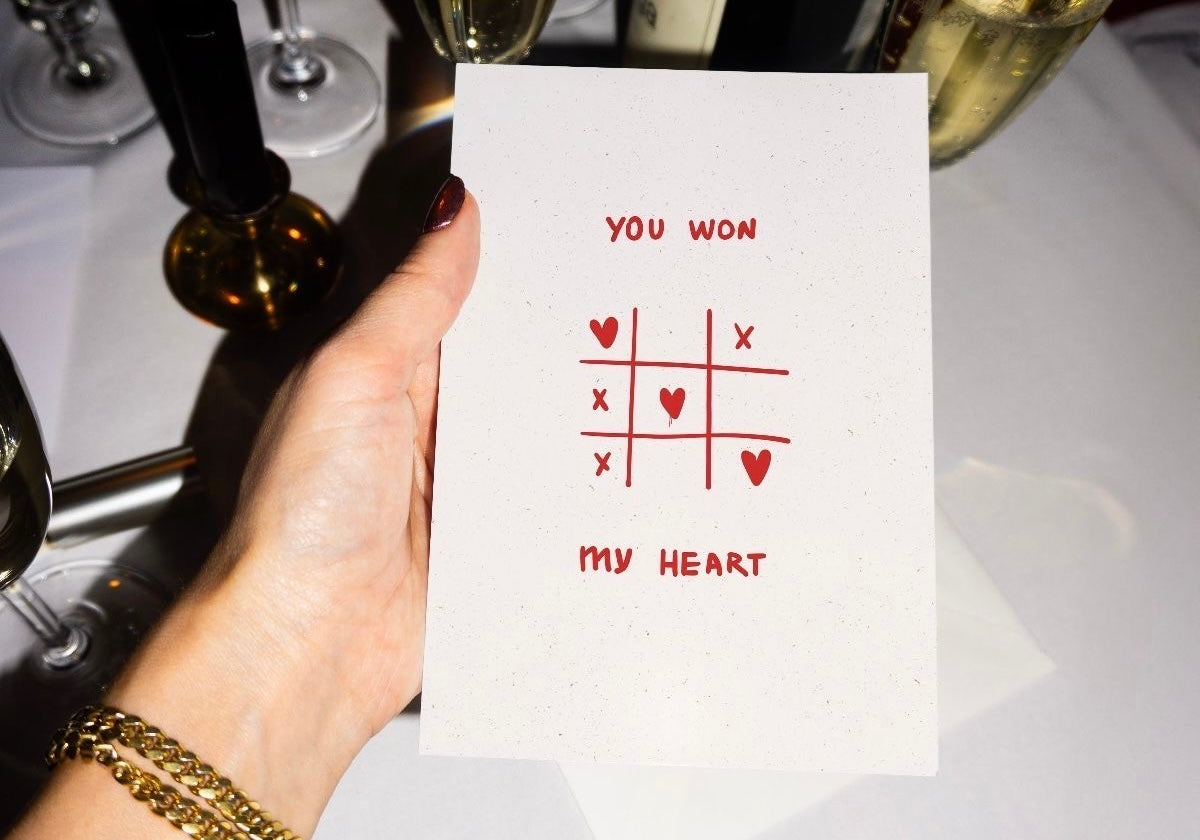 YOU WON
♥ X
X ♥
X ♥
MY HEART